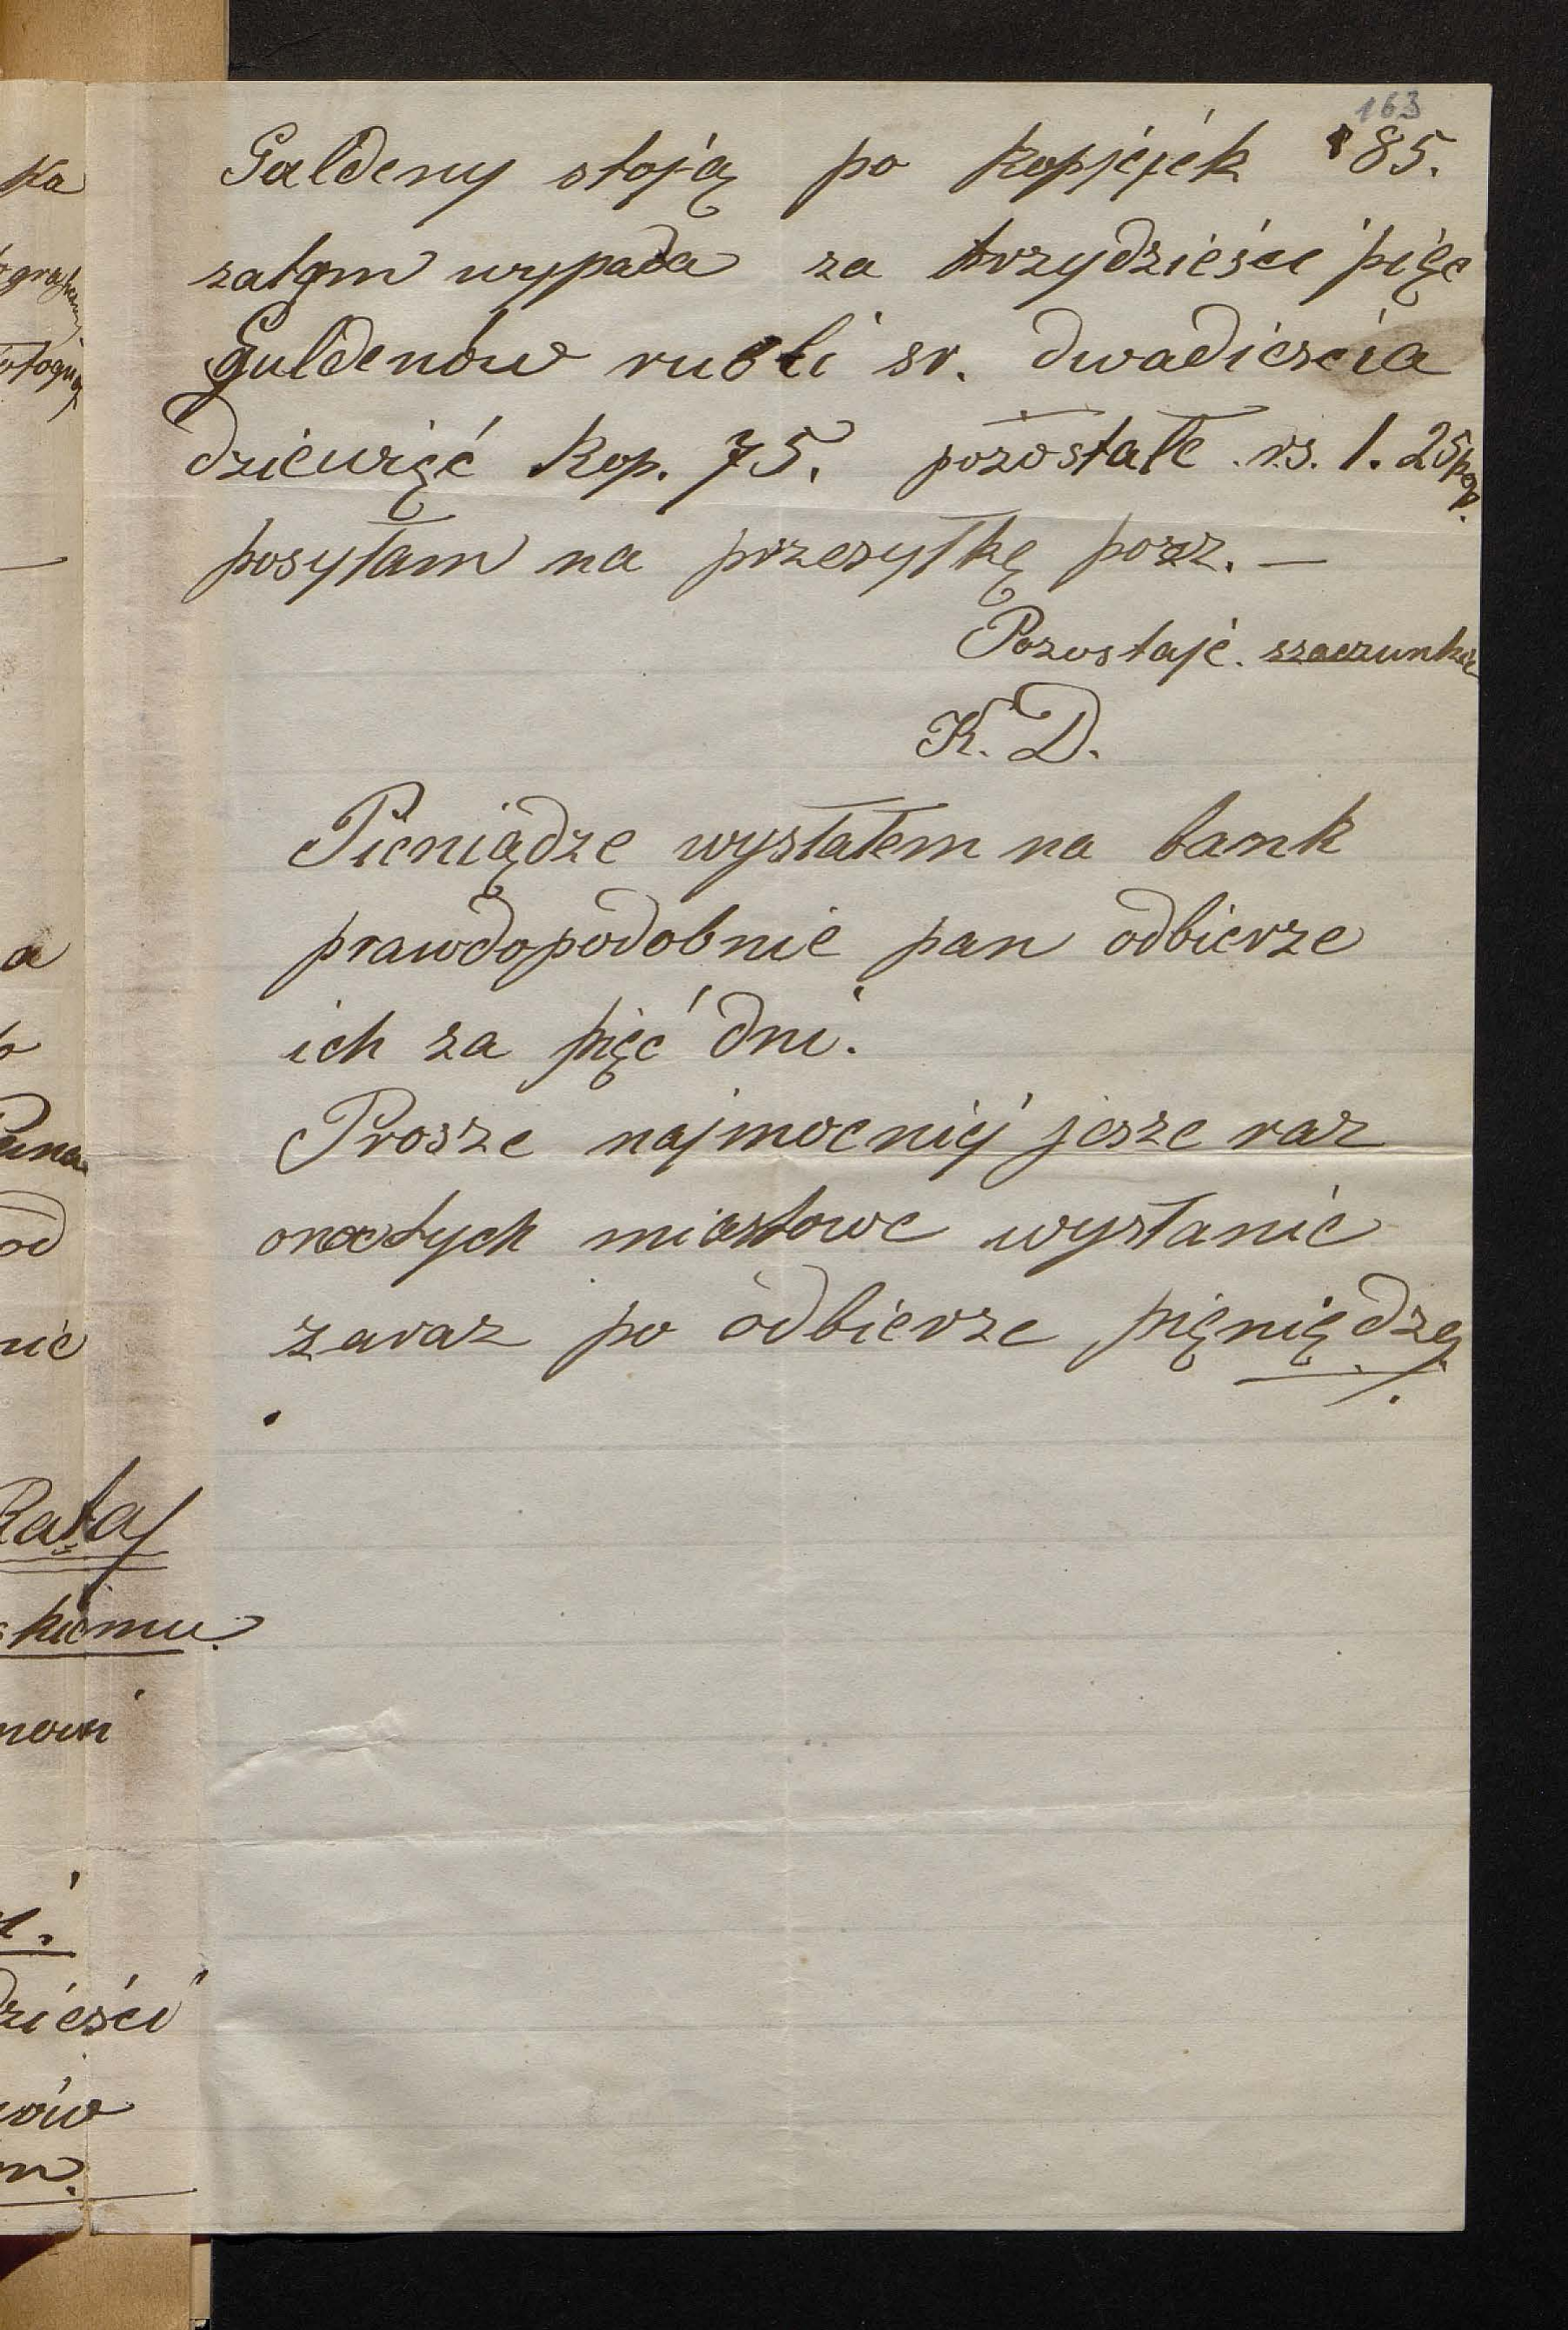 163
Galdeny stoją po kopjejek 85.
zatym wypada za trzydzieści pięc
Guldenów rubli sr. dwadieścia
dziewięć kop. 75. pozostałe rs. 1. 25 kop.
posyłam na przesyłkę
Pozostaje szaczunk
K. D.
Pieniądze wysłałem na bank
prawdopodobnie pan odbierze
ich za pięć dni.
Prosze najmocniej jesze raz
onatych miastowe wysłanie
zaraz po odbierze pięniędzę
ka
a
Pana
od
nie
Rataj
skiemu.
nowi
dzieści
nów
m.